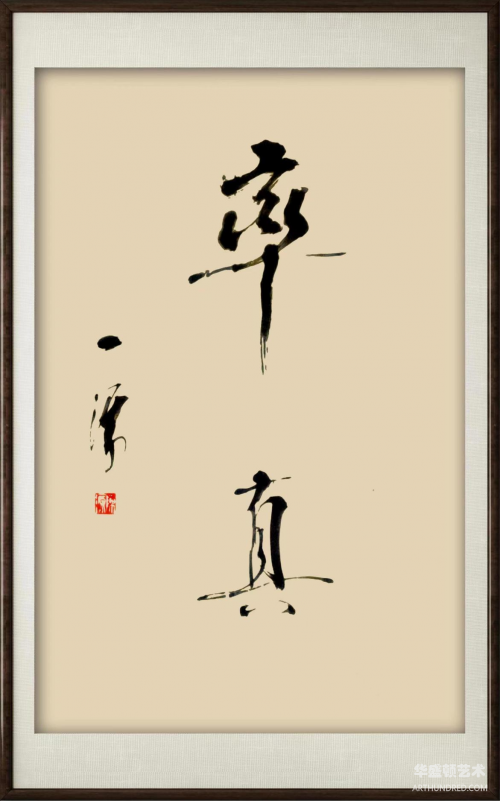 率真
一
华盛顿艺术
ARTHUNDRED.COM